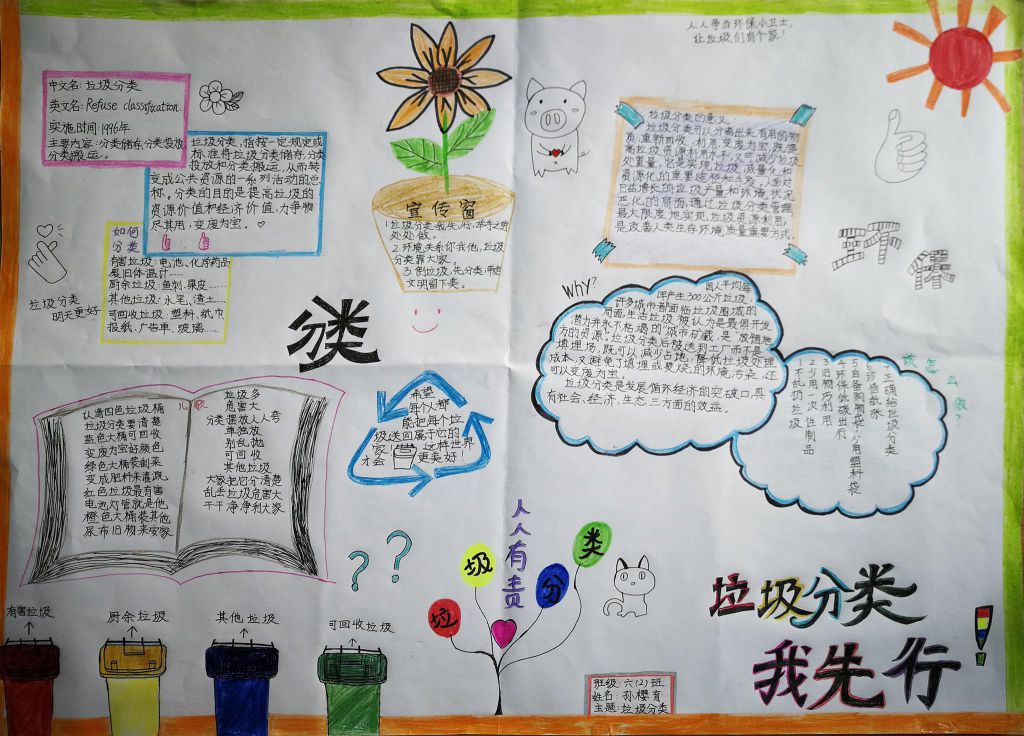 人人争当环保小卫士,
让垃圾们有个家!
中文名: 垃圾分类
英文名: Refuse classification.
实施时间: 1996年
主要内容: 分类储存,分类投放
分类搬运。
垃圾分类,指按一定规定或
标准将垃圾分类储存,分类
投放和分类搬运,从而转
变成公共资源的一系列活动的总
称。分类的目的是提高垃圾的
资源价值和经济价值,力争物
尽其用,变废为宝。
如何
分类
有害垃圾: 电池、化疗药品
废旧体温计……
厨余垃圾: 鱼刺、果皮……
其他垃圾: 水笔、渣土……
可回收垃圾: 塑料、纸巾
报纸、广告单、玻璃……
垃圾分类
明天更好
宣传窗
1.垃圾分类我先行,举手之劳
处处做。
2.环境关系你我他,垃圾
分类靠大家。
3.倒垃圾,先分类,带走
文明留下美。
垃圾分类的意义:
垃圾分类可以分离出来有用的物
质,重新回收、利用,变废为宝,既提
高垃圾资源利用水平,又可减少垃圾
处置量,它是实现垃圾减量化和
恶化的局面,通过垃圾分类管理
最大限度地实现垃圾资源利用,
是改善人类生存环境质量重要方式。
环
保
分类
WHY?
国人平均每
年产生300公斤垃圾,
许多城市都面临垃圾围城的
局面,生活垃圾被认为是最具开发
潜力并永不枯竭的“城市矿藏,是“放错地
方的资源”。垃圾分类后被送到工厂而不是
填埋场,既可以减少占地,降低垃圾处理
成本,又避免了填埋或焚烧的环境污染,还
可以变废为宝。
垃圾分类是发展循环经济的突破口,具
有社会、经济、生态三方面的效益。
该怎么做?
1 不乱扔垃圾
2 少用一次性制品
3 旧物巧利用
4 环保低碳出行
5 自备购物袋,少用塑料袋
6 珍惜纸张
7 正确给垃圾分类
儿歌
认清四色垃圾桶
垃圾分类要清楚
蓝色大桶可回收
变废为宝好颜色
绿色大桶装剩菜
变成肥料来灌溉
红色垃圾最有害
电池灯管就是他
橙色大桶装其他
尿布旧物来安家
垃圾多
危害大
分类摆放人人夸
单独放
别乱抛
可回收
其他垃圾
大家把它分清楚
乱丢垃圾危害大
干干净净利大家
希望
每个人都
能把每个垃
圾送回属于它的
“家”,这样世界
才会更美好!
人人有责
垃
圾
分
类
??
有害垃圾
厨余垃圾
其他垃圾
可回收垃圾
垃圾分类
我先行!
班级: 六(2)班
姓名: 孙樱育
主题: 垃圾分类